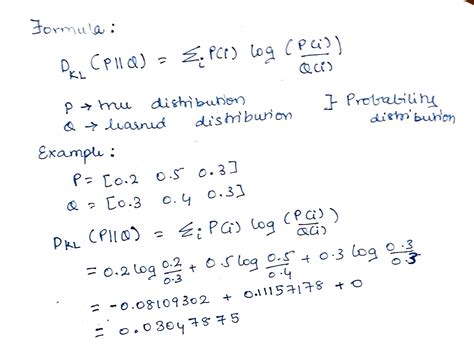 Formula :
D_KL (P||Q) = Σ_i P(i) log (P(i)/Q(i))
P → true distribution
Q → learned distribution
} Probability distribution
Example :
P = [0.2 0.5 0.3]
Q = [0.3 0.4 0.3]
D_KL (P||Q) = Σ_i P(i) log (P(i)/Q(i))
= 0.2 log 0.2/0.3 + 0.5 log 0.5/0.4 + 0.3 log 0.3/0.3
= -0.08109302 + 0.11157178 + 0
= 0.03047875